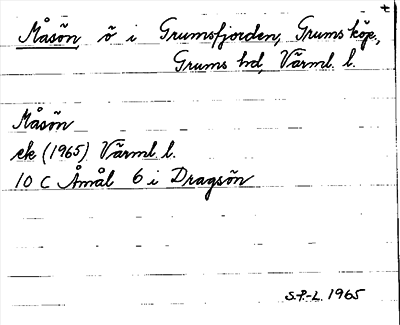 Måsön, ö i Grumsfjorden, Grums köp.,
Grums hd, Värml. l.
Måsön
ek (1965) Värml. l.
10 C Åmål 6 i Dragsön
S.P.-L. 1965